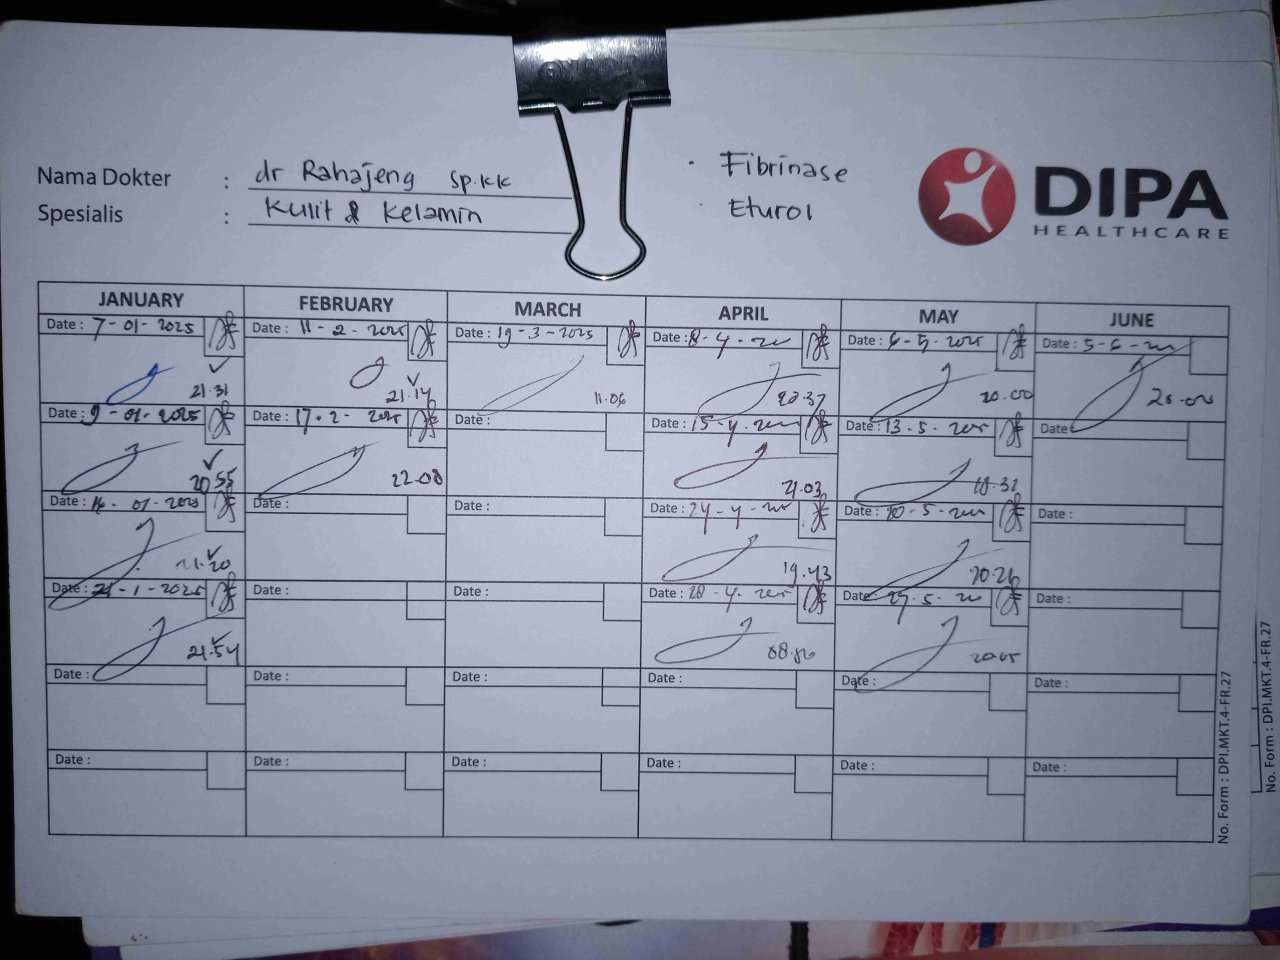 Nama Dokter : dr Rahajeng Sp.KK
Spesialis : Kulit & Kelamin
· Fibrinase
· Eturol
DIPA
HEALTHCARE
JANUARY FEBRUARY MARCH APRIL MAY JUNE
Date : 7-01-2025 Date : 11-2-2025 Date : 19-3-2025 Date : 8-4- Date : 6-5-2025 Date : 5-6-
21.31 21.14 11.06 20.37 20.00 20.00
Date : 9-01-2025 Date : 17-2-2025 Date : Date : 15-4- Date : 13-5-2025 Date
20.55 22.08 21.03 18.32
Date : 16-01-2025 Date : Date : Date : 24-4- Date : 20-5- Date :
21.20 19.43 20.26
Date : 21-1-2025 Date : Date : Date : 28-4-2025 Date 27-5- Date :
21.54 20.05
Date : Date : Date : Date : Date : Date :
Date : Date : Date : Date : Date : Date :
No. Form : DPI.MKT.4-FR.27
No. Form : DPI.MKT.4-FR.27